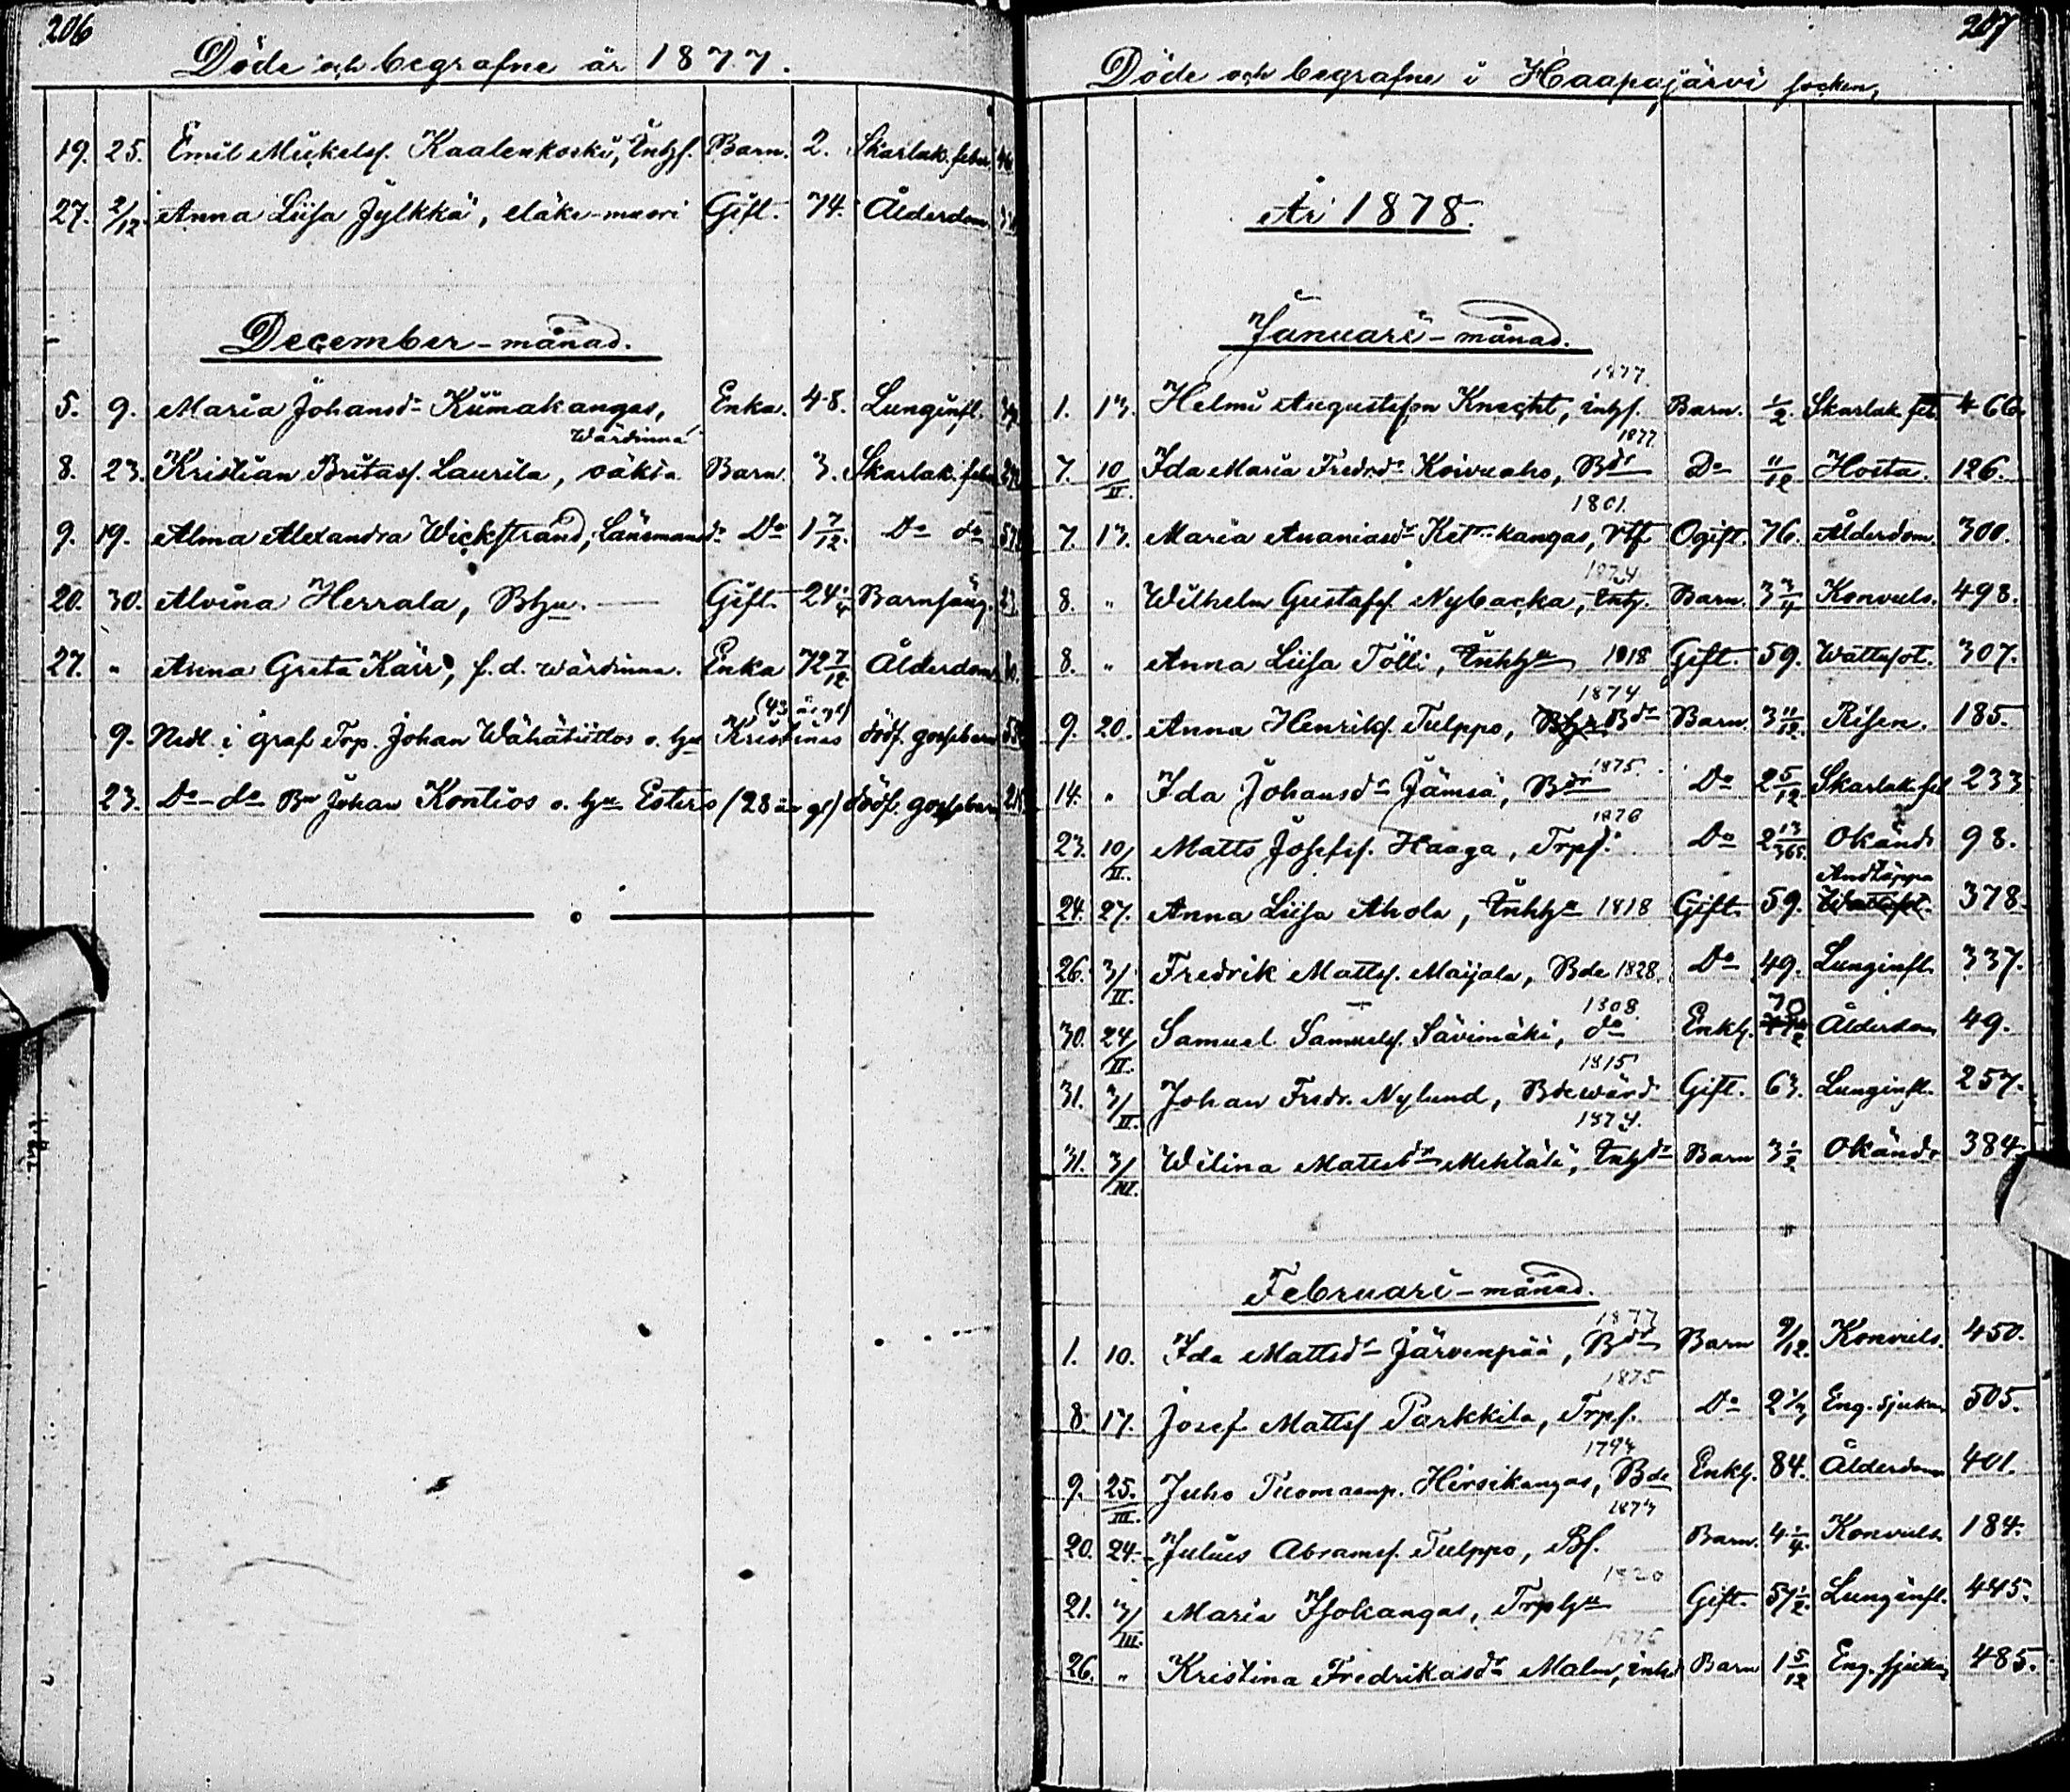 206
Döde och begrafne år 1877.
19. 25. Emil Mickelsf. Kaalenkoski, Inhyf. Barn. 2. Skarlak. feber
27. 2/12. Anna Liisa Jylkkä, eläke-muori Gift. 74. Ålderdom
December-månad.
5. 9. Maria Johansdr Kiimakangas, Enka. 48. Lunginfl.
Wärdinna
8. 23. Kristian Britasf. Laurila, Barn 3. Skarlak. feber
9. 19. Alma Alexandra Wickstrand, Länsmansdr Do 1 7/12. Do do
20. 30. Alvina Herrala, Bhu. — Gift. 24 Barnsäng.
27. „ Anna Greta Kärr, f.d. wärdinna. Enka 72 7/12 Ålderdom
(43 år gl)
9. Nedl. i graf Trp. Johan Wähätiittos o. hu Kristinas dödf. gossebarn
23. Do-do Bn Johan Kontios o. hu Esters (28 år gl) dödf. gossebarn
207
Döde och begrafne i Haapajärvi socken,
År 1878.
Januari-månad.
1877.
1. 13. Helmi Augustsson Knecht, inhyf. Barn. 1/2. Skarlak. feb. 466.
1877
7. 10/II. Ida Maria Fredrdr Koivuaho, Bdr Do 11/12 Hosta. 126.
1801.
7. 13. Maria Ananiasdr kangas, Ogift. 76. Ålderdom. 300.
1874
8. „ Wilhelm Gustafsf. Nybacka, Inhy. Barn. 3 3/4 Konvuls. 498.
8. „ Anna Liisa Tölli, Inhhu 1818 Gift. 59. Wattusot. 307.
1874
9. 20. Anna Henriksf. Tulppo, Bdr Barn. 3 11/12. Risen. 185.
1875.
14. „ Ida Johansdr Jämsä, Bdr Do 2 5/12 Skarlak. feb 233
1876
23. 10/II. Matts Josefsf. Haaga, Trpf. Do 2 13/365. Okänd 98.
Andtäppa
24. 27. Anna Liisa Ahola, Inhhu 1818 Gift. 59. Wattusot. 378.
26. 3/II. Fredrik Mattsf. Maijala, Bde 1828. Do 49. Lunginfl. 337.
1808. 70
30. 24/II. Samuel Samuelsf. Sävimäki, do Enkl. Ålderdom 49.
1815
31. 3/II. Johan Fredr. Nylund, Bdewärd Gift. 63. Lunginfl. 257.
1874.
31. 3/III. Wilina Mattsdr Mehtälä, Inhydr Barn 3 1/2 Okänd 384.
Februari-månad.
1877
1. 10. Ida Mattsdr Järvenpää, Bdr Barn 9/12. Konvuls. 450.
1875
8. 17. Josef Mattsf Parkkila, Trpf. Do 2 1/3 Eng. sjukan 505.
1794
9. 25./III. Juho Tuomaanp. Hirsikangas, Bde Enkl. 84. Ålderdom 401.
1873
20. 24. Julius Abramsf. Tulppo, Bf. Barn. 4 1/4. Konvuls 184.
1820
21. 3/III. Maria Isokangas, Trphu Gift. 57 1/2. Lunginfl. 445.
1876
26. „ Kristina Fredrikasdr Malm, inhd Barn 1 5/12 Eng. sjukan 485.